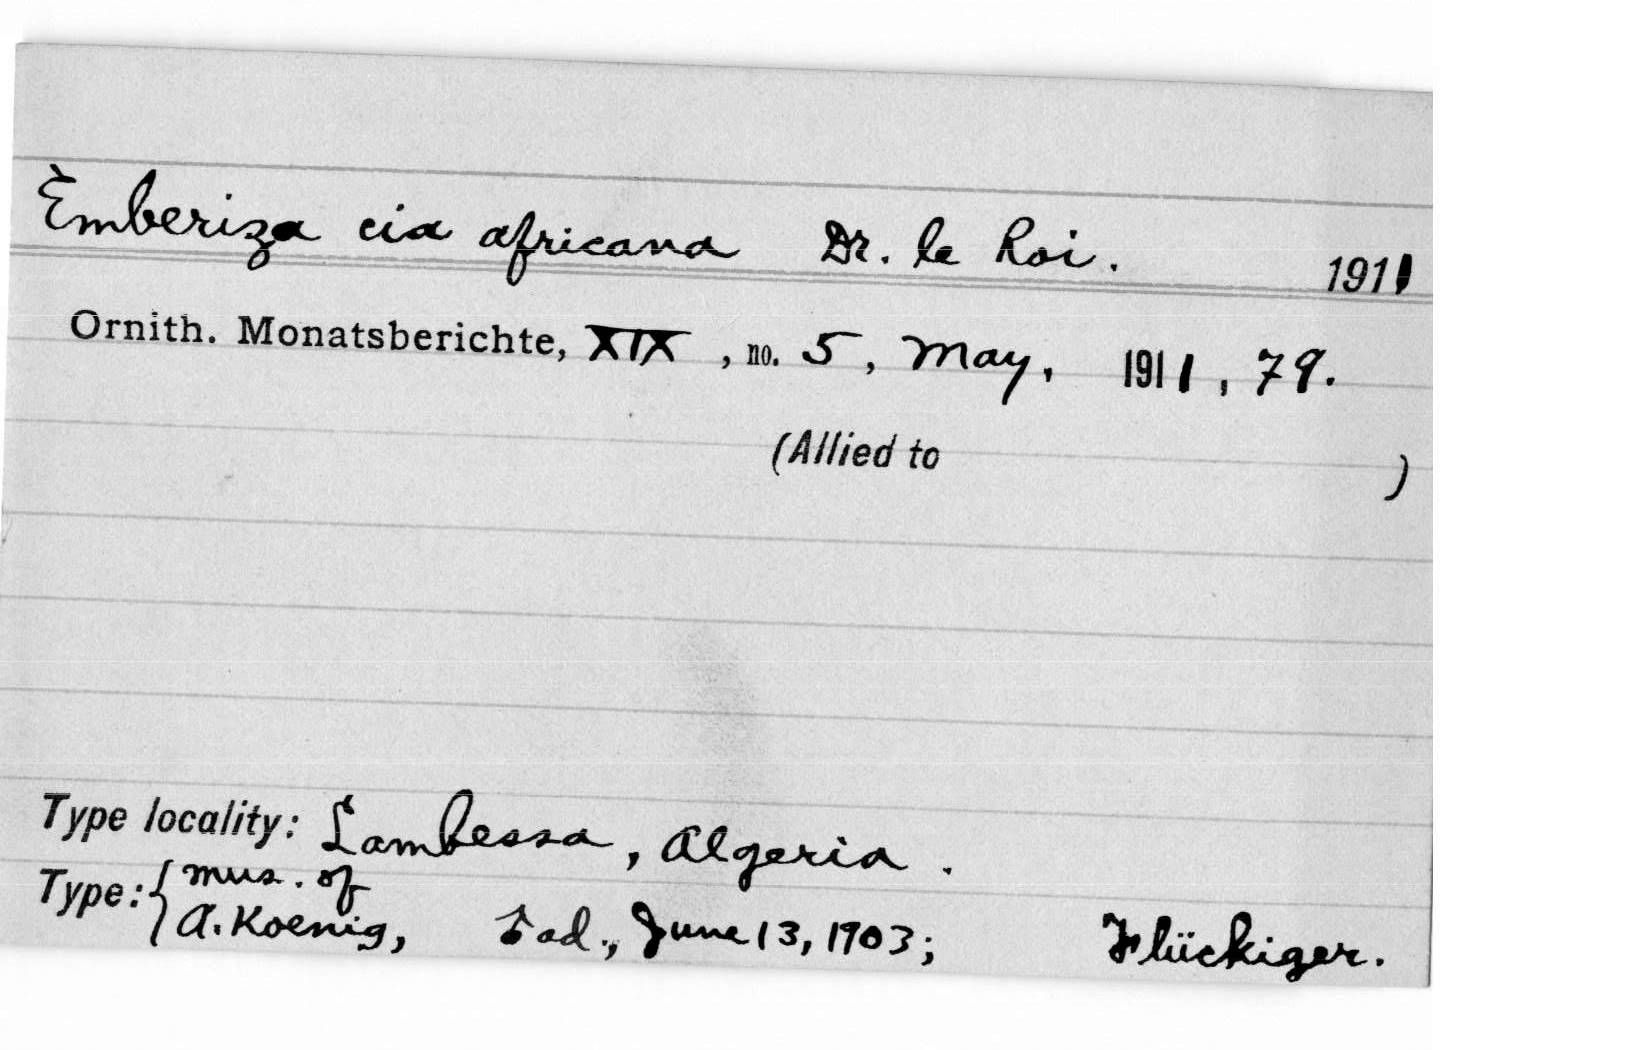 Emberiza cia africana Dr. le Roi. 1911
Ornith. Monatsberichte, XIX, no. 5, May, 1911, 79.
(Allied to )
Type locality: Lambessa, Algeria.
Type: { Mus. of
A. Koenig, ♂ ad., June 13, 1903; Flückiger.